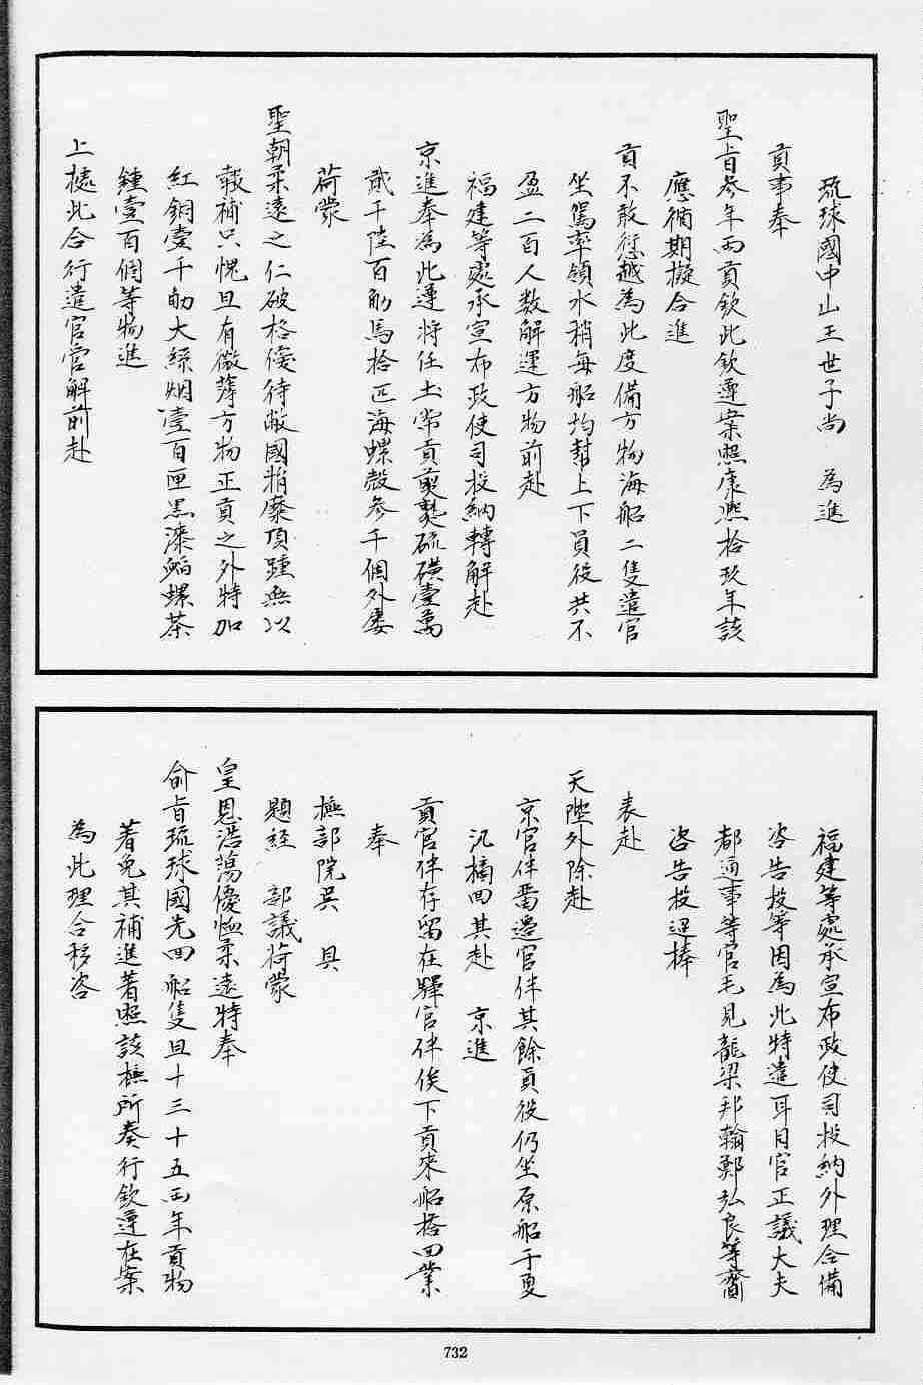 琉球國中山王世子尚　為進
貢事奉
聖旨叁年兩貢欽此欽遵案照康熙拾玖年該
應循期擬合進
貢不敢愆越為此度備方物海船二隻遣官
坐駕率領水稍每船均幫上下員役共不
盈二百人数解運方物前赴
福建等處承宣布政使司投納轉解赴
京進奉為此遵將任土常貢煎熟硫磺壹萬
貳千陸百觔馬拾匹海螺殼參千個外屡
荷蒙
聖朝柔遠之仁破格優待敝國稍糜頂踵無以
報補只愧且有微薄方物正貢之外特加
紅銅壹千觔大絲烟壹百匣黑漆螺茶
鍾壹百個等物進
上據此合行遣官官解前赴
福建等處承宣布政使司投納外理合備
咨告投等因為此特遣耳目官正議大夫
都通事等官毛見龍梁邦翰鄭弘良等齎
咨告投迎棒
表赴
天陛外除赴
京官伴番遷官伴其餘員役仍坐原船于夏
汛摘回其赴　京進
貢官伴存留在驛官伴俟下貢來船搭回業
奉
撫部院吳　具
題經　部議荷蒙
皇恩浩蕩優恤柔遠特奉
俞旨琉球國先回船隻且十三十五兩年貢物
着免其補進著照該撫所奏行欽遵在案
為此理合移咨
732